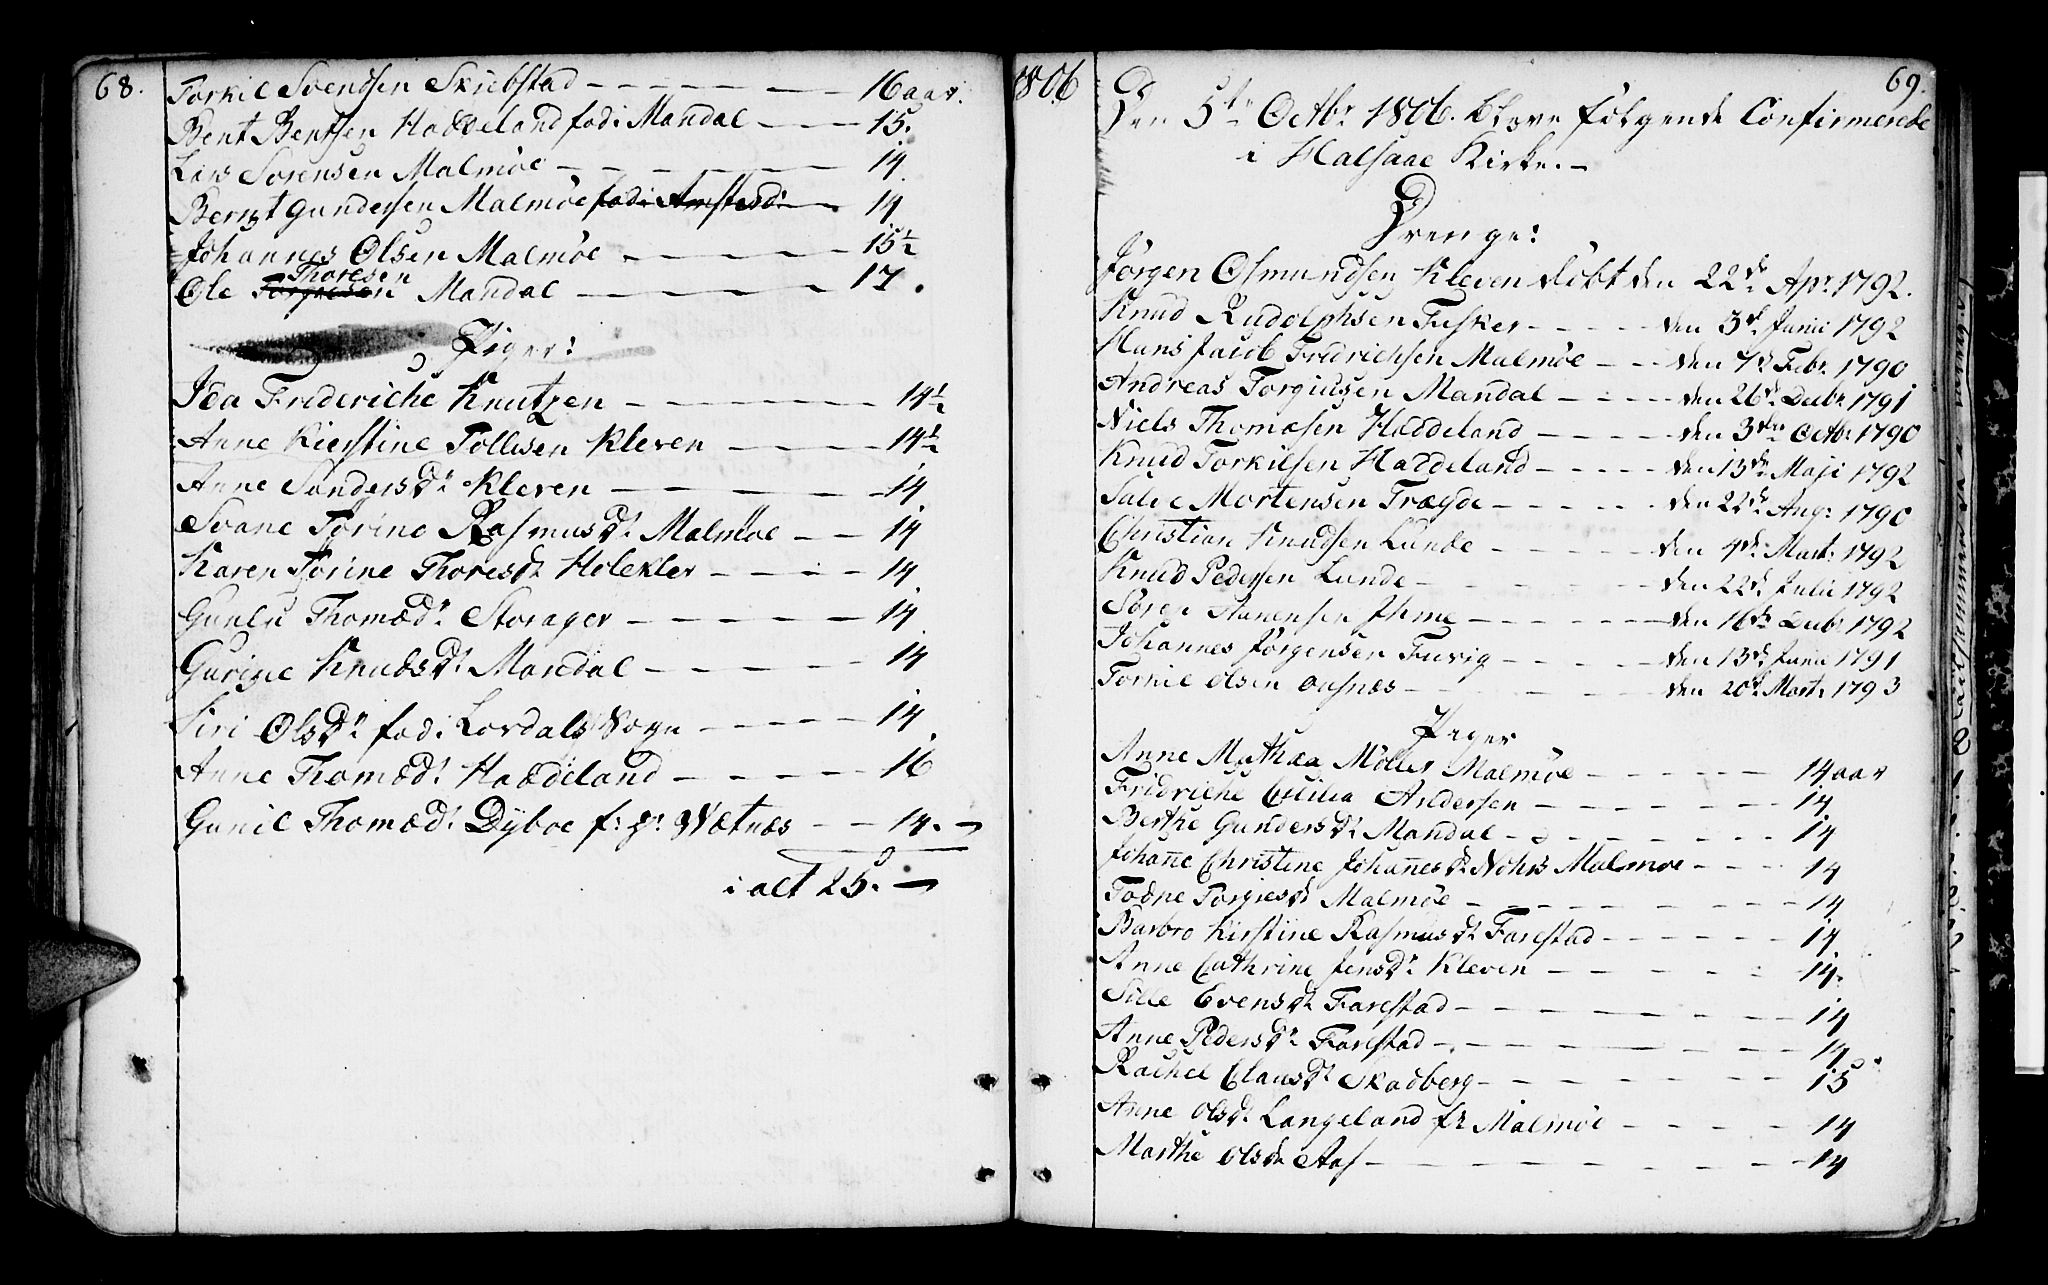 68.
Torkil Svendsen Skiebstad — — — — 16 aar.
Bent Bentsen Haddeland fød i Mandal — — — 15.
Lars Sørensen Malmöe — — — — 14
Bernt Gundersen Malmöe fød i Amsterd: — 14
Johannes Olsen Malmöe — — — — 15½
Thoresen
Ole Torgiesen Mandal — — — — 17.
Piger:
Ida Frideriche Knutzen — — — — 14½
Anne Kierstine Tollisen Kleven — — — 14½
Anne Sanders Dr Kleven — — — — 14
Svane Torine Rasmus Dr Malmöe — — 14
Karen Torine Thores Dr Holekler — — — 14
Gunlu Thomæ Dr Storager — — — — 14
Gurine Knuds Dr Mandal — — — — 14
Siri Ols Dr fød i Lordals Sogn — — — 14
Anne Thomæ Dr Haddeland — — — — 16
Gunil Thomæ Dr Dyboe f: p: Wætnæs — — 14. —
i alt 25. —
1806
69.
Den 5te Octbr 1806. bleve følgende Confirmerede
i Halsaae Kirke. —
Drenge:
Jørgen Osmundsen Kleven døbt den 22de Apr: 1792.
Knud Rudolphsen Fisker — — — den 3de Junii 1792
Hans Jacob Fredrichsen Malmöe — — den 7de Febr. 1790
Andreas Torgiusen Mandal — — — den 26de Decbr 1791
Niels Thomæsen Haddeland — — — den 3die Octbr 1790
Knud Torkilsen Haddeland — — — den 13de Maji 1792
Salve Mortensen Trægde — — — den 22de Aug: 1790
Christian Knudsen Lunde — — — den 4de Mart: 1792
Knud Pedersen Lunde — — — den 22de Julii 1792
Sören Aanensen Ihme — — — den 16de Decbr 1792
Johannes Jørgensen Fuvig — — — den 13de Junii 1791
Tomil Olsen Aasnæs — — — den 20de Mart: 1793
Piger
Anne Mathea Möller Malmöe — — — — 14 aar
Fridriche Cicilia Andersen — — — — 14
Berthe Gunders Dr Mandal — — — — 14
Johane Christine Johanes Dr Nohrs Malmöe — — — 14
Todne Torgies Dr Malmöe — — — — 14
Barbro Kirstine Rasmus Dr Farestad — — — — 14
Anne Cathrine Jens Dr Kleven — — — — 14.
Sille Evens Dr Farestad — — — — 14
Anne Peders Dr Farestad — — — — 14
Rachel Claus Dr Skadberg — — — — 15
Anne Ols Dr Langeland fr Malmöe — — — — 14
Marthe Ols Dr Aas — — — — 14